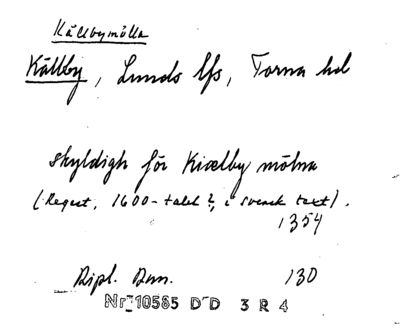 Källbymölla
Källby, Lunds lfs, Torna hd
skyldigh för Kiælby mölna
(Regest, 1600-talet?, i svensk text).
1354
Dipl. Dan. 130
Nr 10565 D D 3 R 4